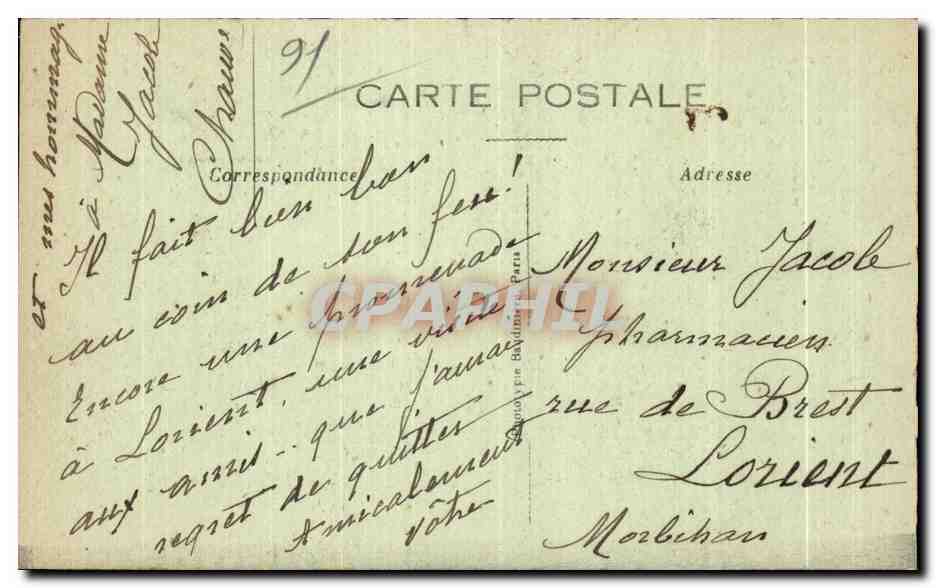 91
CARTE POSTALE
Correspondance
Adresse
Il fait bien bon
au coin de son feu!
Encore une promenade
à Lorient, une visite
aux amis - que j'aurai
regret de quitter
Amicalement
vôtre
et mes hommages
à Madame
Jacob
Phototypie Baudinière, Paris
Monsieur Jacob
pharmacien
rue de Brest
Lorient
Morbihan
CPAPHIL